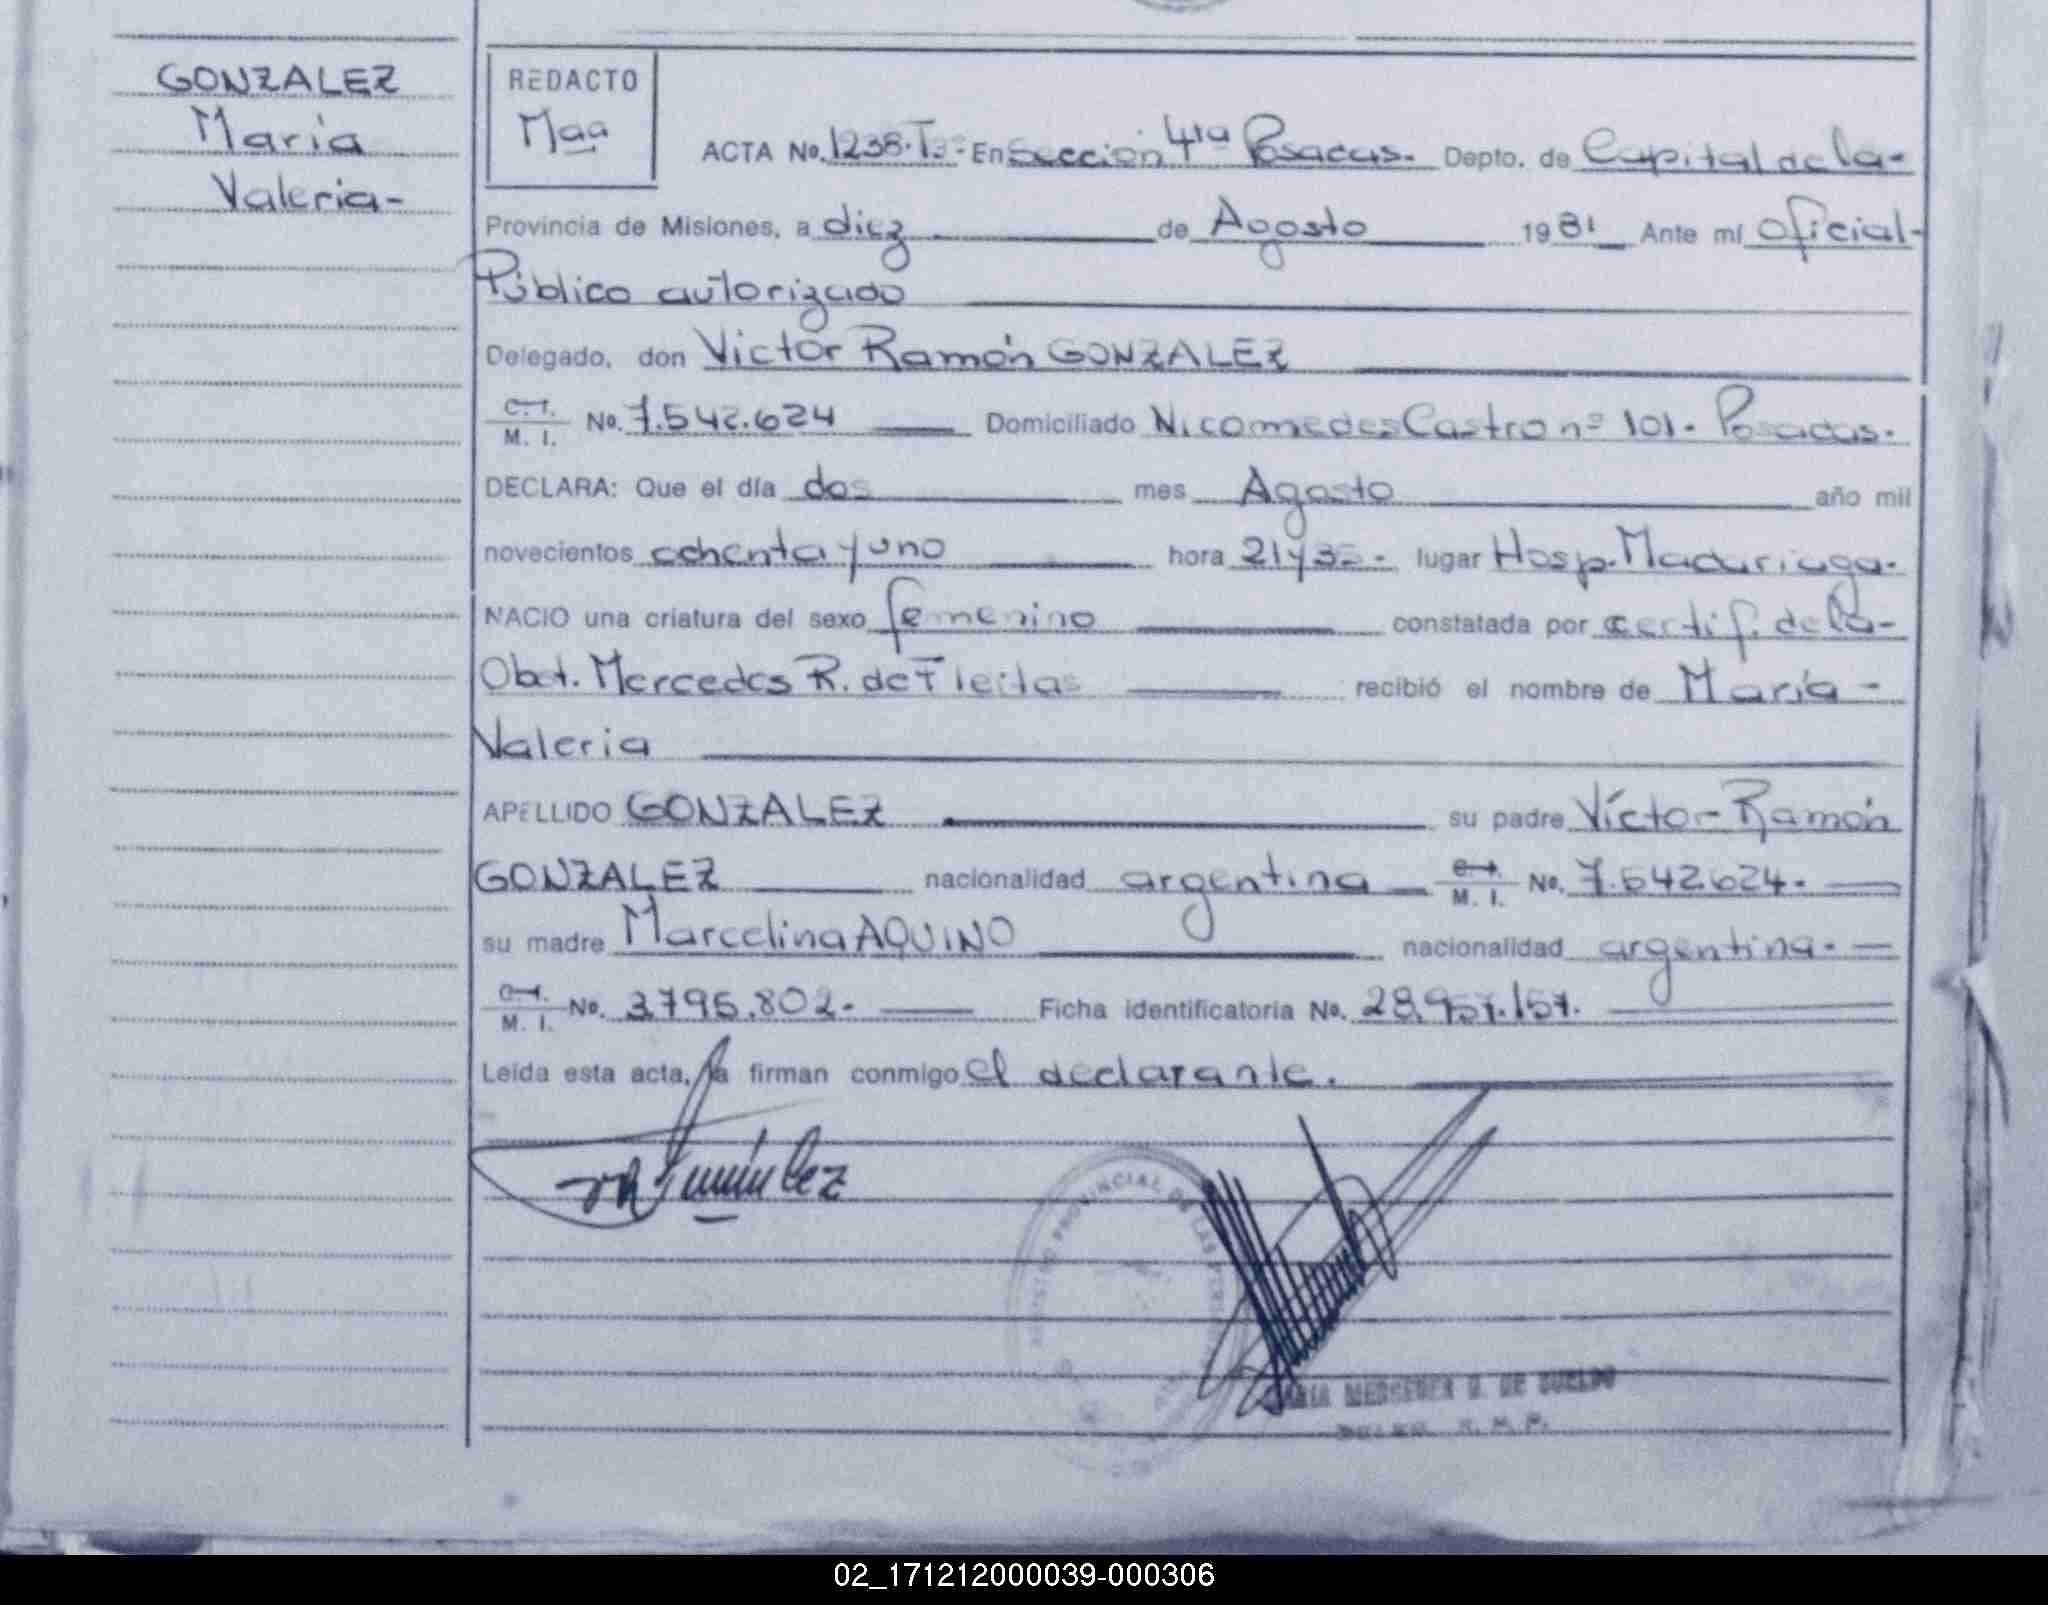 GONZALEZ
María
Valeria-
REDACTO
Maa
ACTA No. 1238. En Sección 4ta Posadas. Depto. de Capital de la-
Provincia de Misiones, a diez de Agosto 1981 Ante mí oficial-
Público autorizado
Delegado, don Victor Ramón GONZALEZ
C.I. M. I. No. 7.542.624 Domiciliado Nicomedes Castro nº 101. Posadas.
DECLARA: Que el día dos mes Agosto año mil
novecientos ochenta y uno hora 21 y lugar Hosp. Madariaga.
NACIO una criatura del sexo femenino constatada por certif. de la-
Obst. Mercedes R. de Fleitas recibió el nombre de María-
Valeria
APELLIDO GONZALEZ su padre Víctor Ramón
GONZALEZ nacionalidad argentina C.I. M. I. No. 7.542.624.
su madre Marcelina AQUINO nacionalidad argentina.
C.I. M. I. No. 3.795.802. Ficha identificatoria No. 28.957.157.
Leída esta acta, la firman conmigo el declarante.
PROVINCIAL DE LAS
MARIA MERCEDES DE SUELDO
02_171212000039-000306